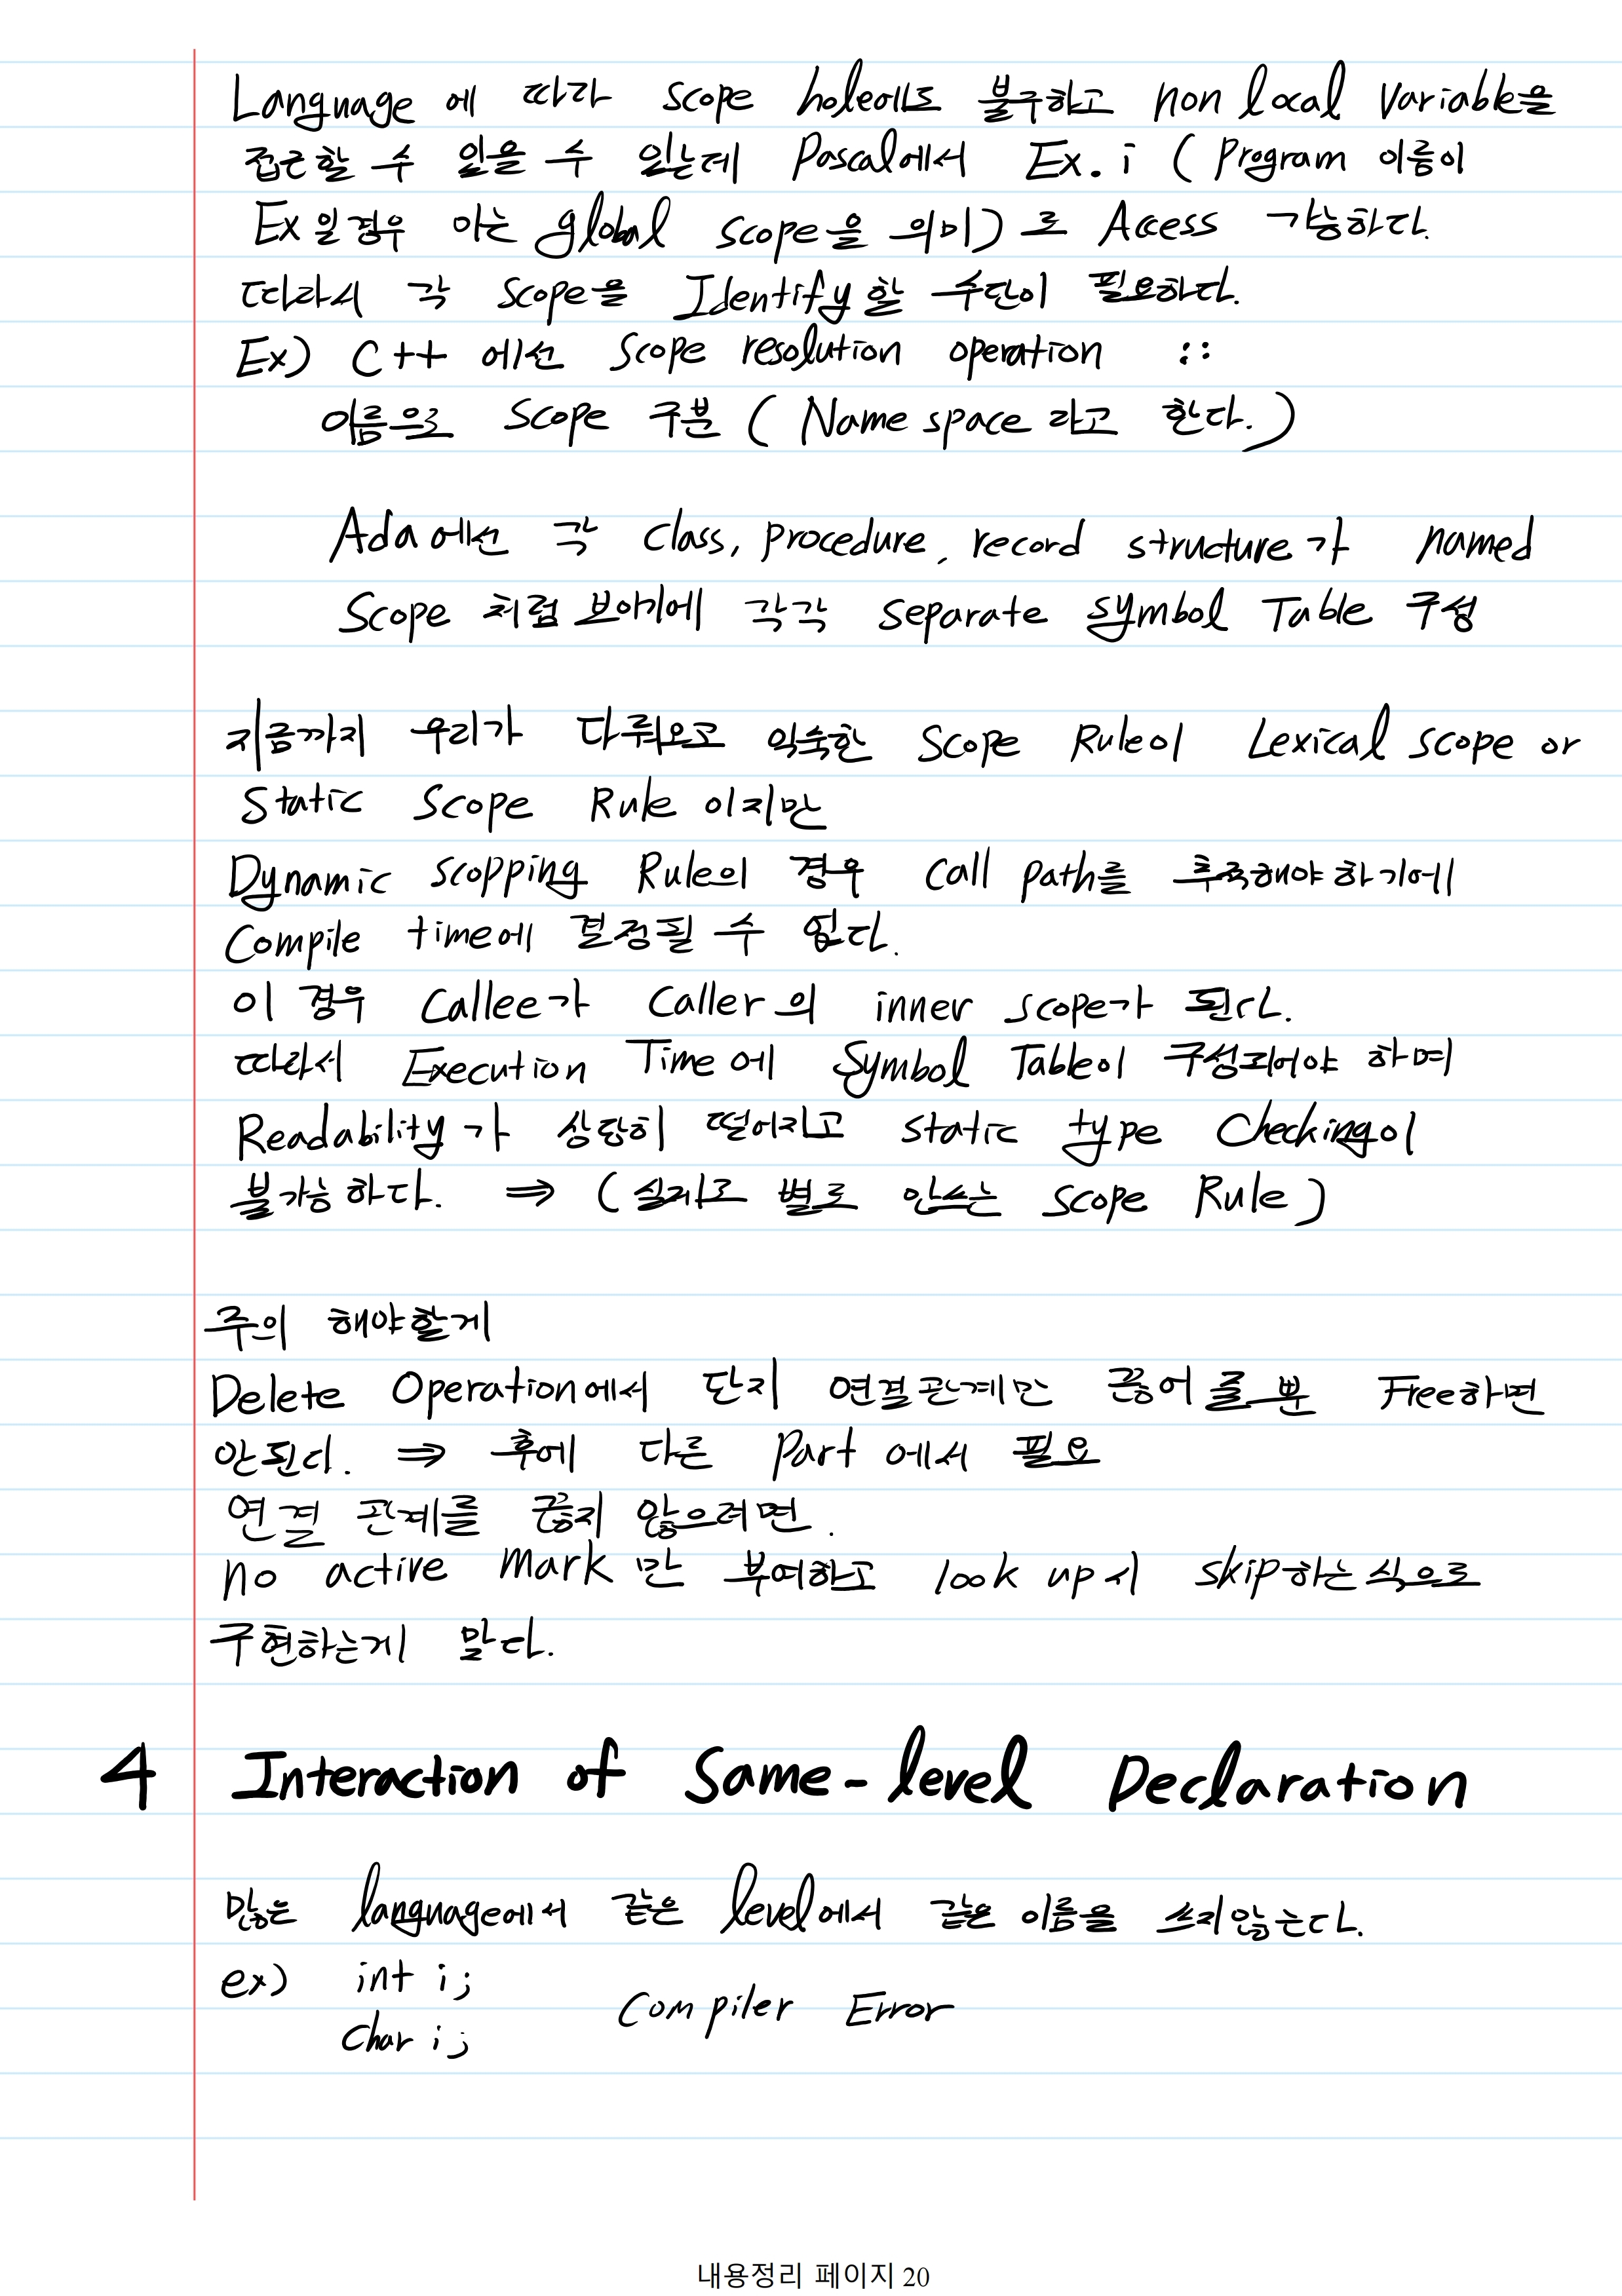 Language 에 따라 scope hole에도 불구하고 non local variable을
접근할 수 있을 수 있는데 Pascal에서 Ex.i ( Program 이름이
Ex 일경우 이는 global scope을 의미) 로 Access 가능하다.
따라서 각 scope을 Identify할 수단이 필요하다.
Ex) C++ 에선 Scope resolution operation ::
이름으로 Scope 구분 ( Name space 라고 한다.)
Ada에선 각 class, procedure, record structure가 named
Scope 처럼 보이기에 각각 separate symbol Table 구성
지금까지 우리가 다뤄오고 익숙한 Scope Rule이 Lexical scope or
Static Scope Rule 이지만
Dynamic scopping Rule의 경우 Call path를 추측해야하기에
Compile time에 결정될 수 없다.
이 경우 Callee가 Caller의 inner scope가 된다.
따라서 Execution Time에 Symbol Table이 구성되어야 하며
Readability가 상당히 떨어지고 static type Checking이
불가능하다. ⇒ (실제로 별로 안쓰는 scope Rule)
주의 해야할게
Delete Operation에서 단지 연결관계만 끊어줄뿐 Free하면
안된다. ⇒ 후에 다른 part에서 필요
연결 관계를 끊지 않으려면.
no active mark만 부여하고 look up시 skip하는 식으로
구현하는게 맞다.
4 Interaction of Same-level Declaration
많은 language에서 같은 level에서 같은 이름을 쓰지않는다.
ex) int i;
Compiler Error
char i;
내용정리 페이지 20